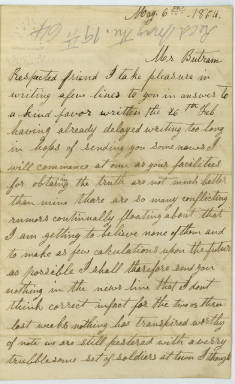 May. 6th 1864.
Recd May Thu. 19th 64
Mr Butram
Respected friend I take pleasure in
writing a few lines to you in answer to
a kind favor written the 26th Feb
having already delayed writing too long
in hopes of sending you some news I
will commence at once as your facilities
for obtaing the truth are not much better
than mine there are so many conflicting
rumors continually floating about that
I am getting to believe none of them and
to make as few calculations upon the future
as possible I shall therefore send you
nothing in the news line that I dont
think correct infact for the two or three
last weeks nothing has transpired worthy
of note we are still pestered with a verry
trubblesome set of soldiers at town I though